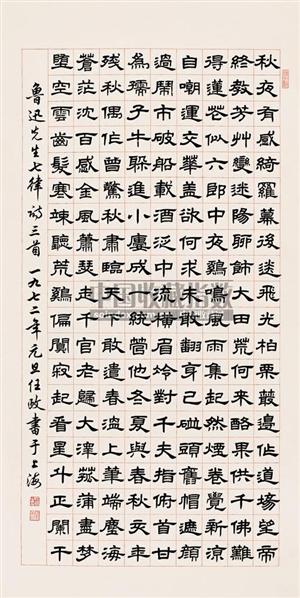 秋夜有感綺羅幕後送飛光柏栗叢邊作道場望帝
終敎芳艸變迷陽聊飾大田荒何來酪果供千佛難
得蓮花似六郎中夜鷄鳴風雨集起然煙卷覺新涼
自嘲運交華蓋欲何求未敢翻身已碰頭舊帽遮顏
過鬧市破船載酒泛中流橫眉冷對千夫指俯首甘
爲孺子牛躲進小樓成一統管他冬夏與春秋亥年
殘秋偶作曾驚秋肅臨天下敢遣春溫上筆端塵海
蒼茫沈百感金風蕭瑟走千官老歸大澤菰蒲盡夢
墮空雲齒髮寒竦聽荒鷄偏闃寂起看星斗正闌干
魯迅先生七律詩三首 一九七二年元旦任政書于上海